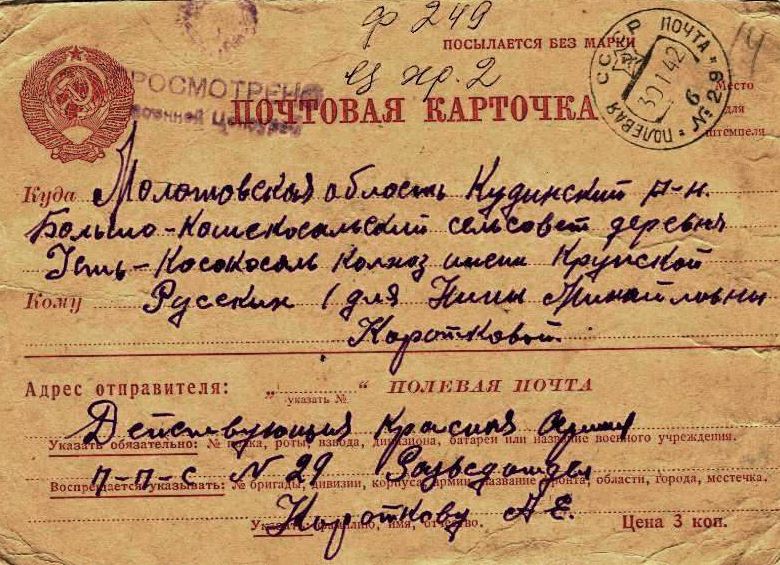 ф 249
ПОСЫЛАЕТСЯ БЕЗ МАРКИ
ПРОСМОТРЕНО
Военной Цензурой
ец хр. 2
СССР ПОЧТА
30 1 42
6
ПОЛЕВАЯ № 29
14
Место
для
штемпеля
ПОЧТОВАЯ КАРТОЧКА
Куда Молотовская область Кудинский р-н.
Больше-Кошекосальский сельсовет деревня
Усть-Косокосаль Колхоз имени Крупской
Кому Русских (для Нины Михайловны
Коротковой
Адрес отправителя: „ “ ПОЛЕВАЯ ПОЧТА
указать №
Действующая Красная Армия
Указать обязательно: № полка, роты, взвода, дивизиона, батареи или название военного учреждения.
П-П-С N 29 Разведотдел
Воспрещается указывать: № бригады, дивизии, корпуса, армии, название фронта, области, города, местечка.
Короткову А Е.
Указать: фамилию, имя, отчество.
Цена 3 коп.